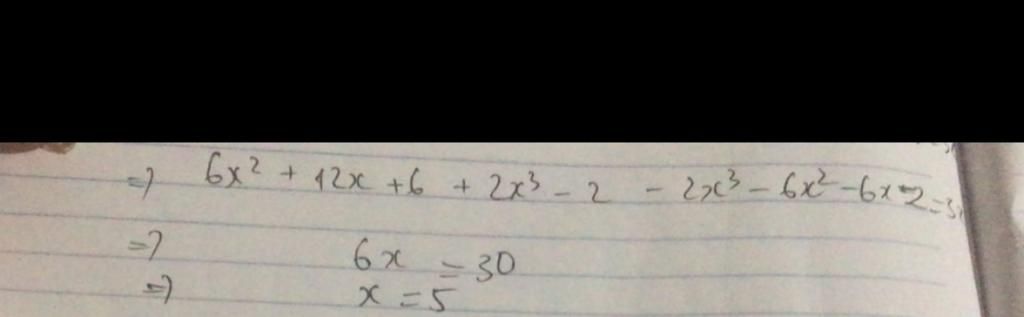 => 6x² + 12x + 6 + 2x³ - 2 - 2x³ - 6x² - 6x - 2 =
=> 6x = 30
=> x = 5